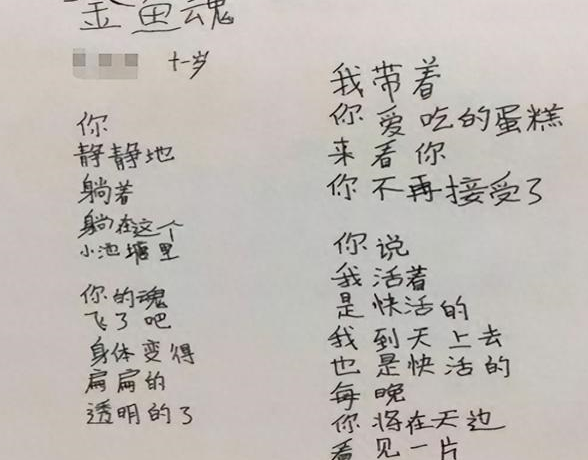 金鱼魂
十一岁
你
静静地
躺着
躺在这个
小池塘里
你的魂
飞了吧
身体变得
扁扁的
透明的了
我带着
你爱吃的蛋糕
来看你
你不再接受了
你说
我活着
是快活的
我到天上去
也是快活的
每晚
你将在天边
看见一片